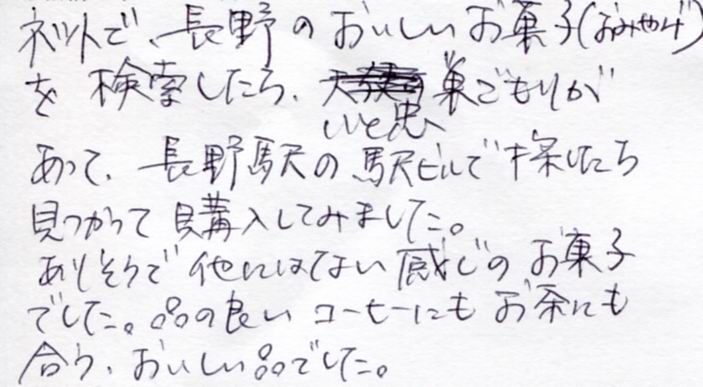 ネットで、長野のおいしいお菓子(おみやげ)
を検索したら、巣ごもりが
いと忠
あって、長野駅の駅ビルで探したら
見つかって購入してみました。
ありそうで他にはない感じのお菓子
でした。品の良いコーヒーにもお茶にも
合う、おいしい品でした。